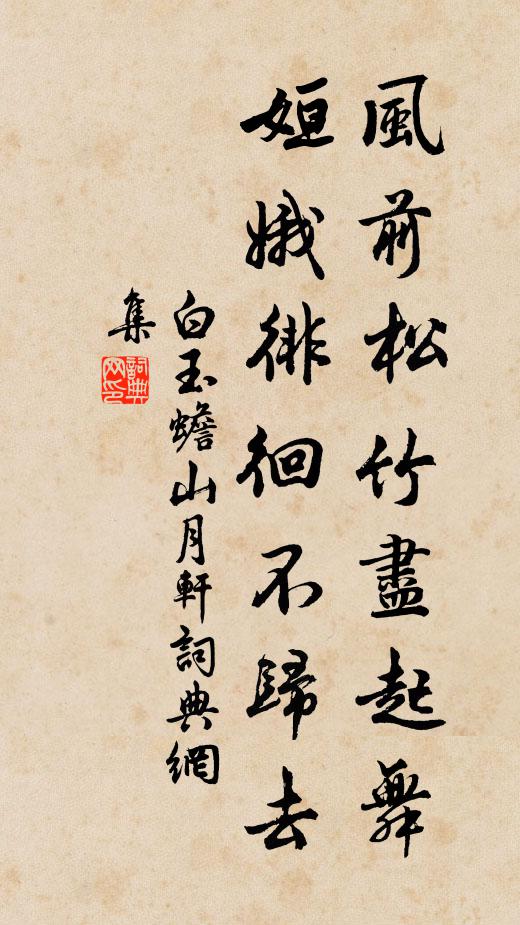 風前松竹盡起舞
姮娥徘徊不歸去
白玉蟾山月軒詞典網
集
詞典
网印